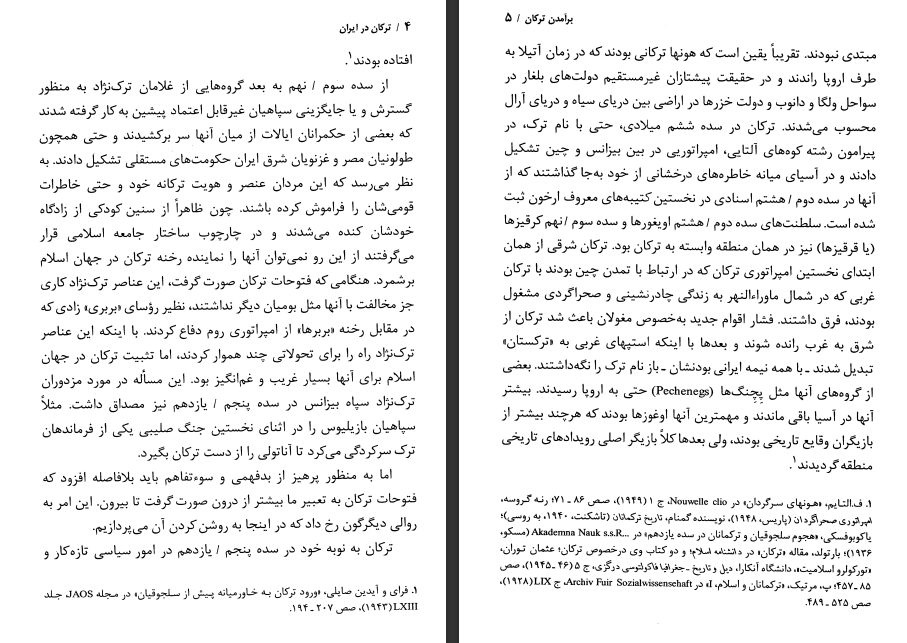 ۴ / ترکان در ایران
افتاده بودند۱.
از سده سوم / نهم به بعد گروه‌هایی از غلامان ترک‌نژاد به منظور
گسترش و یا جایگزینی سپاهیان غیرقابل اعتماد پیشین به کار گرفته شدند
که بعضی از حکمرانان ایالات از میان آنها سر برکشیدند و حتی همچون
طولونیان مصر و غزنویان شرق ایران حکومت‌های مستقلی تشکیل دادند. به
نظر می‌رسد که این مردان عنصر و هویت ترکانه خود و حتی خاطرات
قومی‌شان را فراموش کرده باشند. چون ظاهراً از سنین کودکی از زادگاه
خودشان کنده می‌شدند و در چارچوب ساختار جامعه اسلامی قرار
می‌گرفتند از این رو نمی‌توان آنها را نماینده رخنه ترکان در جهان اسلام
برشمرد. هنگامی که فتوحات ترکان صورت گرفت، این عناصر ترک‌نژاد کاری
جز مخالفت با آنها مثل بومیان دیگر نداشتند، نظیر رؤسای «بربری» زادی که
در مقابل رخنه «بربرها» از امپراتوری روم دفاع کردند. با اینکه این عناصر
ترک‌نژاد راه را برای تحولاتی چند هموار کردند، اما تثبیت ترکان در جهان
اسلام برای آنها بسیار غریب و غم‌انگیز بود. این مسأله در مورد مزدوران
ترک‌نژاد سپاه بیزانس در سده پنجم / یازدهم نیز مصداق داشت. مثلاً
سپاهیان بازیلیوس را در اثنای نخستین جنگ صلیبی یکی از فرماندهان
ترک سرکردگی می‌کرد تا آناتولی را از دست ترکان بگیرد.
اما به منظور پرهیز از بدفهمی و سوءتفاهم باید بلافاصله افزود که
فتوحات ترکان به تعبیر ما بیشتر از درون صورت گرفت تا بیرون. این امر به
روالی دیگرگون رخ داد که در اینجا به روشن کردن آن می‌پردازیم.
ترکان به نوبه خود در سده پنجم / یازدهم در امور سیاسی تازه‌کار و
۱. فرای و آیدین صایلی، «ورود ترکان به خاورمیانه پیش از سلجوقیان» در مجله JAOS، جلد
LXIII (۱۹۴۳)، صص ۲۰۷ ـ ۱۹۴.
برآمدن ترکان / ۵
مبتدی نبودند. تقریباً یقین است که هونها ترکانی بودند که در زمان آتیلا به
طرف اروپا راندند و در حقیقت پیشتازان غیرمستقیم دولت‌های بلغار در
سواحل ولگا و دانوب و دولت خزرها در اراضی بین دریای سیاه و دریای آرال
محسوب می‌شدند. ترکان در سده ششم میلادی، حتی با نام ترک، در
پیرامون رشته کوه‌های آلتایی، امپراتوریی در بین بیزانس و چین تشکیل
دادند و در آسیای میانه خاطره‌های درخشانی از خود به‌جا گذاشتند که از
آنها در سده دوم / هشتم اسنادی در نخستین کتیبه‌های معروف ارخون ثبت
شده است. سلطنت‌های سده دوم / هشتم اویغورها و سده سوم / نهم کرقیزها
(یا قرقیزها) نیز در همان منطقه وابسته به ترکان بود. ترکان شرقی از همان
ابتدای نخستین امپراتوری ترکان که در ارتباط با تمدن چین بودند با ترکان
غربی که در شمال ماوراءالنهر به زندگی چادرنشینی و صحراگردی مشغول
بودند، فرق داشتند. فشار اقوام جدید به‌خصوص مغولان باعث شد ترکان از
شرق به غرب رانده شوند و بعدها با اینکه استپهای غربی به «ترکستان»
تبدیل شدند ـ با همه نیمه ایرانی بودنشان ـ باز نام ترک را نگه‌داشتند. بعضی
از گروه‌های آنها مثل پِچِنِگ‌ها (Pechenegs) حتی به اروپا رسیدند. بیشتر
آنها در آسیا باقی ماندند و مهمترین آنها اوغوزها بودند که هرچند بیشتر از
بازیگران وقایع تاریخی بودند، ولی بعدها کلاً بازیگر اصلی رویدادهای تاریخی
منطقه گردیدند۱.
۱. ف.التایم، «هونهای سرگردان» در Nouwelle clio، ج ۱ (۱۹۴۹)، صص ۸۶ ـ ۷۱؛ رنه گروسه،
امپراتوری صحراگردان (پاریس، ۱۹۴۸)، نویسنده گمنام، تاریخ ترکمانان (تاشکنت، ۱۹۴۰، به روسی)؛
یاکوبوفسکی، «هجوم سلجوقیان و ترکمانان در سده یازدهم» در ...Akademna Nauk s.s.R (مسکو،
۱۹۳۶)؛ بارتولد، مقاله «ترکان» در دانشنامه اسلام؛ و دو کتاب وی درخصوص ترکان؛ عثمان توران،
«تورکولرو اسلامیت»، دانشگاه آنکارا، دیل و تاریخ ـ جغرافیا فاکولتوسی درگزی، ج ۵ (۴۶ ـ ۱۹۴۵)، صص
۸۵ ـ ۴۵۷؛ پ. مرتیک، «ترکمانان و اسلام، I» در Archiv Fuir Sozialwissensehaft، ج LIX (۱۹۲۸)،
صص ۵۲۵ ـ ۴۸۹.